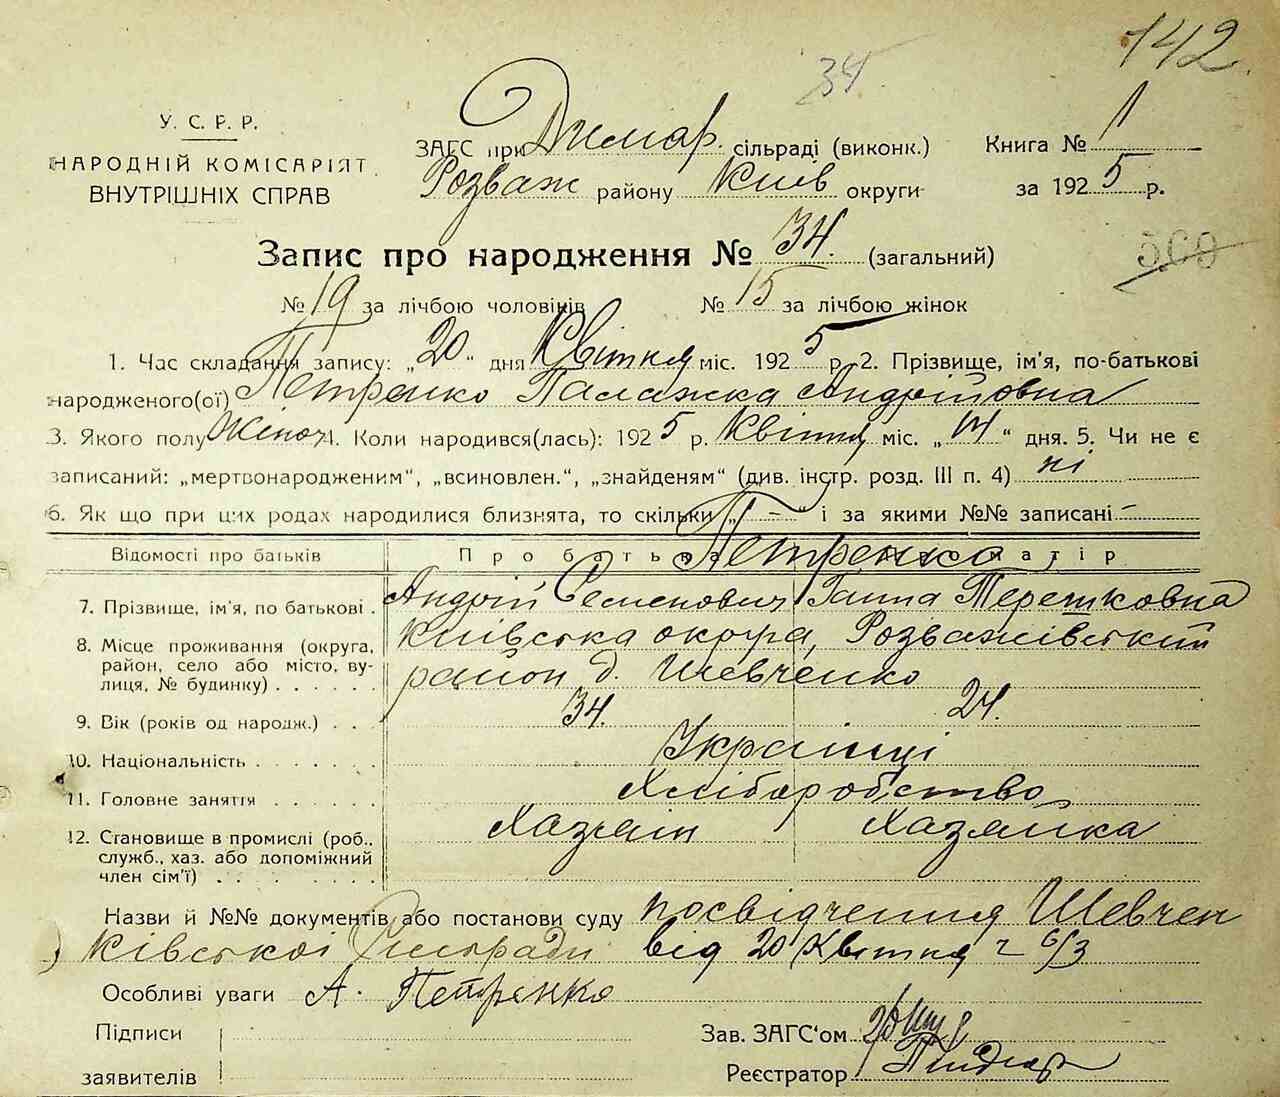 142
34
У. С. Р. Р.
НАРОДНІЙ КОМІСАРІЯТ
ВНУТРІШНІХ СПРАВ
ЗАГС при Димар. сільраді (виконк.) Книга № 1
Розваж району Київ округи за 1925 р.
Запис про народження № 34. (загальний)
560
№ 19 за лічбою чоловіків № 15 за лічбою жінок
1. Час складання запису: „20“ дня Квітня міс. 1925 р. 2. Прізвище, ім'я, по-батькові
народженого(ої) Петренко Палажка Андрійовна
3. Якого полу Жіноч 4. Коли народився(лась): 1925 р. Квітня міс. „14“ дня. 5. Чи не є
записаний: „мертвонародженим“, „всиновлен.“, „знайденям“ (див. інстр. розд. III п. 4) ні
6. Як що при цих родах народилися близнята, то скільки „ - “ і за якими №№ записані -
Відомості про батьків Про батька Про матір
Петренко
7. Прізвище, ім'я, по батькові . Андрій Семенович Ганна Терешковна
8. Місце проживання (округа, район, село або місто, вулиця, № будинку) . . . . . . Київська округа, Розважівський
район д. Шевченко
9. Вік (років од народж.) . . . 34. 24.
10. Національність . . . . . . . Українці
11. Головне заняття . . . . . . Хліборобство
12. Становище в промислі (роб., служб., хаз. або допоміжний член сім'ї) . . . . . . . Хазяін Хазяйка
Назви й №№ документів або постанови суду посвідчення Шевчен
ківської Сильради від 20 Квітня ч 6/3
Особливі уваги А. Петренко
Підписи
заявителів
Зав. ЗАГС'ом
Реєстратор